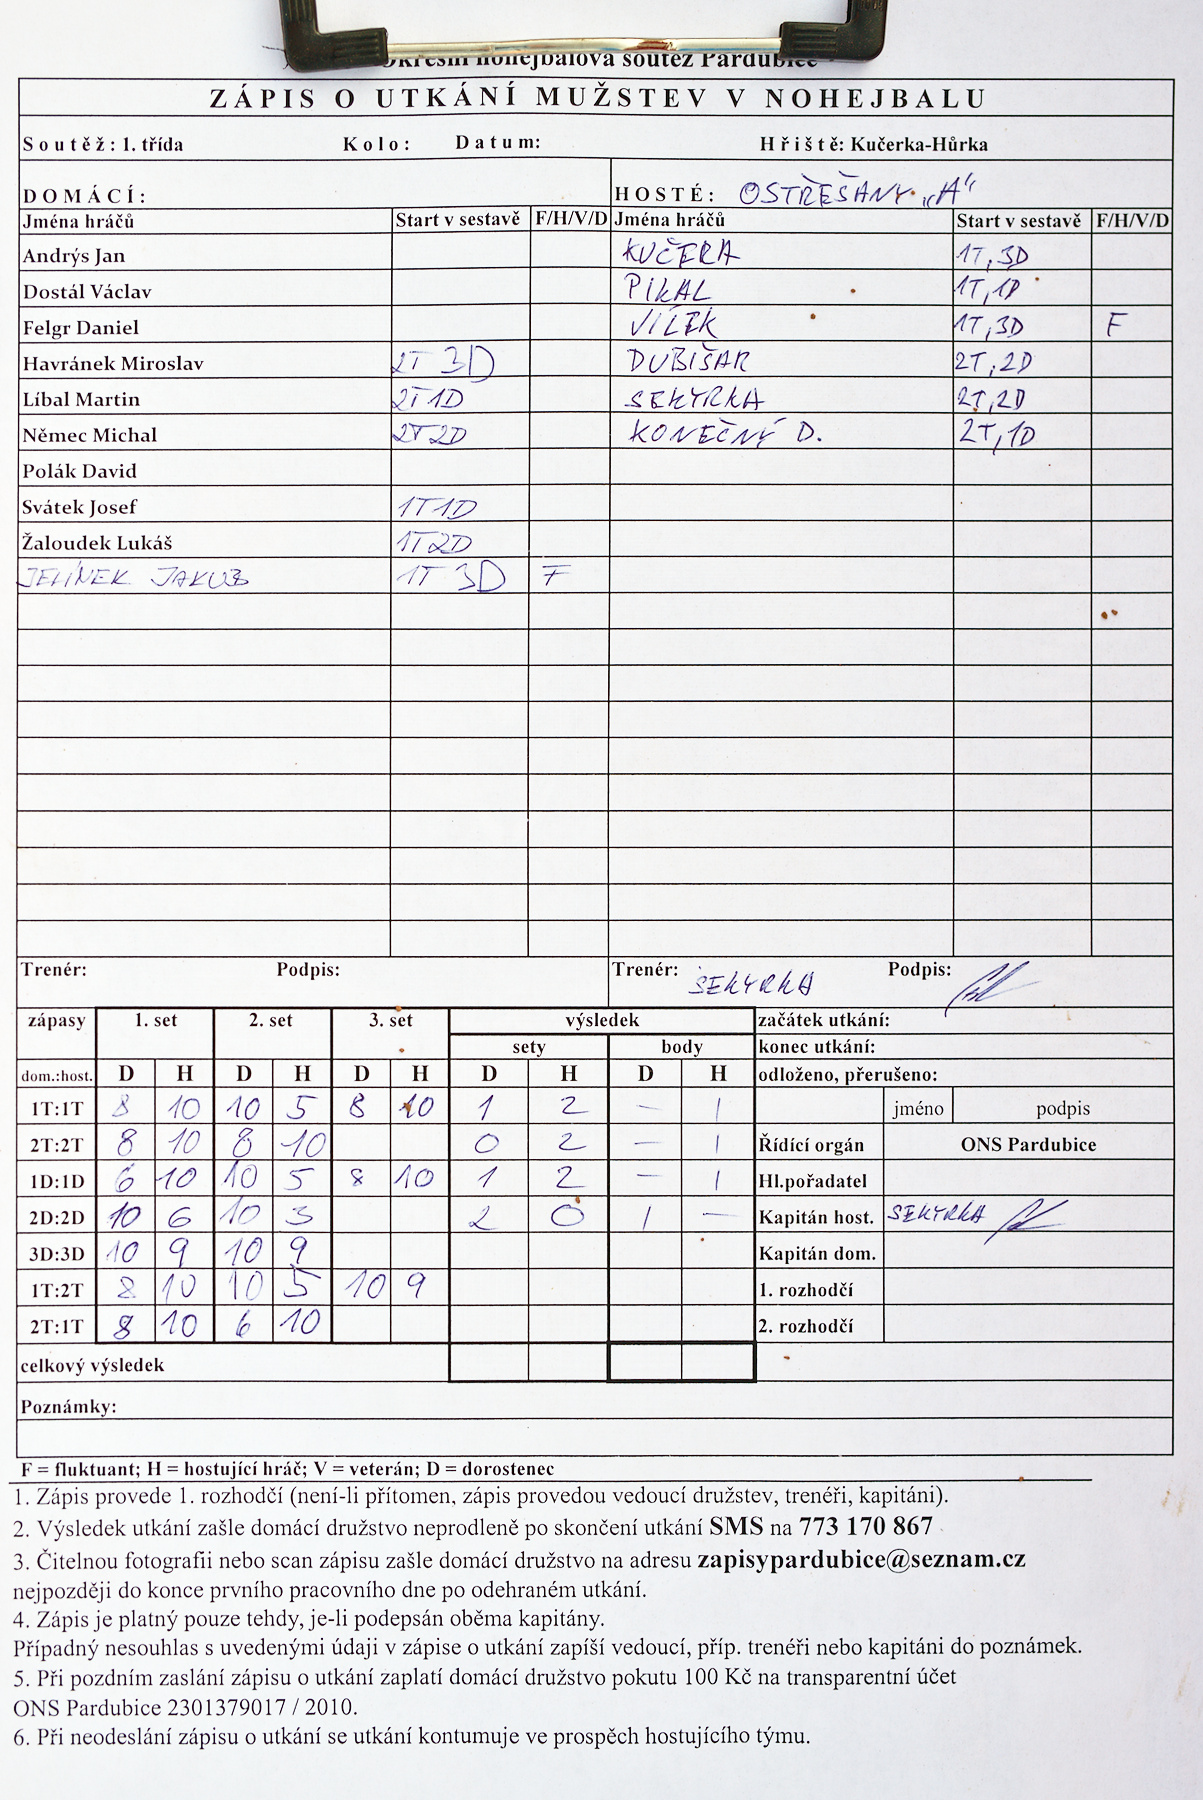 Okresní nohejbalová soutěž Pardubice
ZÁPIS O UTKÁNÍ MUŽSTEV V NOHEJBALU
Soutěž: 1. třída Kolo: Datum: Hřiště: Kučerka-Hůrka
DOMÁCÍ: HOSTÉ: OSTŘEŠANY „A"
Jména hráčů Start v sestavě F/H/V/D Jména hráčů Start v sestavě F/H/V/D
Andrýs Jan KUČERA 1T,3D
Dostál Václav PIKAL 1T,1D
Felgr Daniel VÍLEK 1T,3D F
Havránek Miroslav 2T 3D DUBIŠAR 2T,2D
Líbal Martin 2T1D SEKYRKA 2T,2D
Němec Michal 2T2D KONEČNÝ D. 2T,1D
Polák David
Svátek Josef 1T1D
Žaloudek Lukáš 1T2D
JELÍNEK JAKUB 1T 3D F
Trenér: Podpis: Trenér: SEKYRKA Podpis:
zápasy 1. set 2. set 3. set výsledek začátek utkání:
sety body konec utkání:
dom.:host. D H D H D H D H D H odloženo, přerušeno:
1T:1T 8 10 10 5 8 10 1 2 – 1 jméno podpis
2T:2T 8 10 8 10 0 2 – 1 Řídící orgán ONS Pardubice
1D:1D 6 10 10 5 8 10 1 2 – 1 Hl.pořadatel
2D:2D 10 6 10 3 2 0 1 – Kapitán host. SEKYRKA
3D:3D 10 9 10 9 Kapitán dom.
1T:2T 8 10 10 5 10 9 1. rozhodčí
2T:1T 8 10 6 10 2. rozhodčí
celkový výsledek
Poznámky:
F = fluktuant; H = hostující hráč; V = veterán; D = dorostenec
1. Zápis provede 1. rozhodčí (není-li přítomen, zápis provedou vedoucí družstev, trenéři, kapitáni).
2. Výsledek utkání zašle domácí družstvo neprodleně po skončení utkání SMS na 773 170 867
3. Čitelnou fotografii nebo scan zápisu zašle domácí družstvo na adresu zapisypardubice@seznam.cz
nejpozději do konce prvního pracovního dne po odehraném utkání.
4. Zápis je platný pouze tehdy, je-li podepsán oběma kapitány.
Případný nesouhlas s uvedenými údaji v zápise o utkání zapíší vedoucí, příp. trenéři nebo kapitáni do poznámek.
5. Při pozdním zaslání zápisu o utkání zaplatí domácí družstvo pokutu 100 Kč na transparentní účet
ONS Pardubice 2301379017 / 2010.
6. Při neodeslání zápisu o utkání se utkání kontumuje ve prospěch hostujícího týmu.